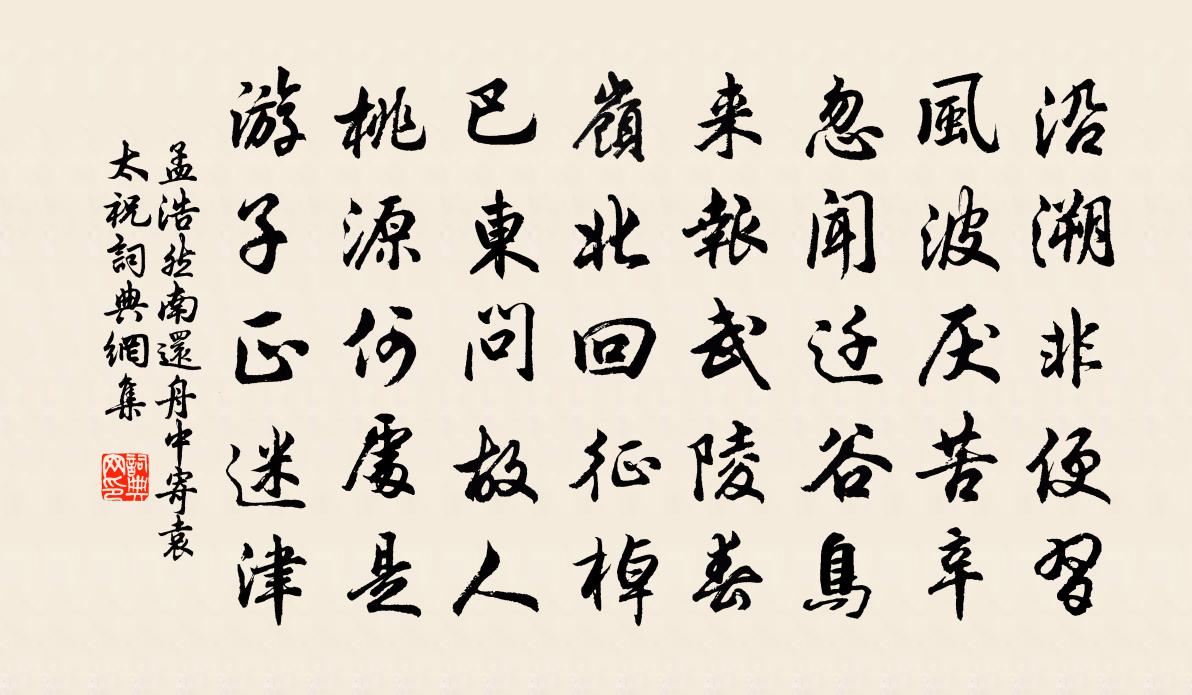 沿溯非便習
風波厌苦辛
忽聞迁谷鳥
来報武陵春
嶺北回征棹
巴東問故人
桃源何處是
游子正迷津
孟浩然南還舟中寄袁
太祝詞典網集
詞典網印